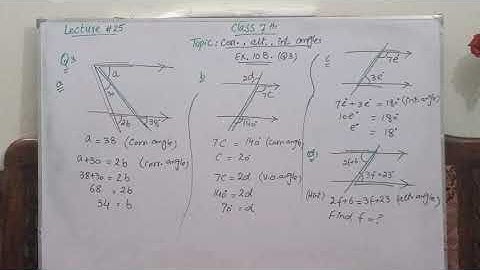 Lecture #25
Class 7th
Topic: Corr., alt., int angles
EX. 10B. (Q3)
Q3
a
a
30
2b
38°
a = 38 (Corr. angle)
a+30 = 2b (Corr. angle)
38+30 = 2b
68 = 2b
34 = b
b
2d
7C
140°
7C = 140° (Corr. angle)
C = 20°
7C = 2d (v.o. angle)
140° = 2d
70° = d
c
7e
3e°
7e + 3e° = 180° (int. angle)
10e° = 180°
e° = 18°
d
2f+6
3f+23°
(Hint)
2f+6 = 3f+23 (alt. angle)
Find f = ?